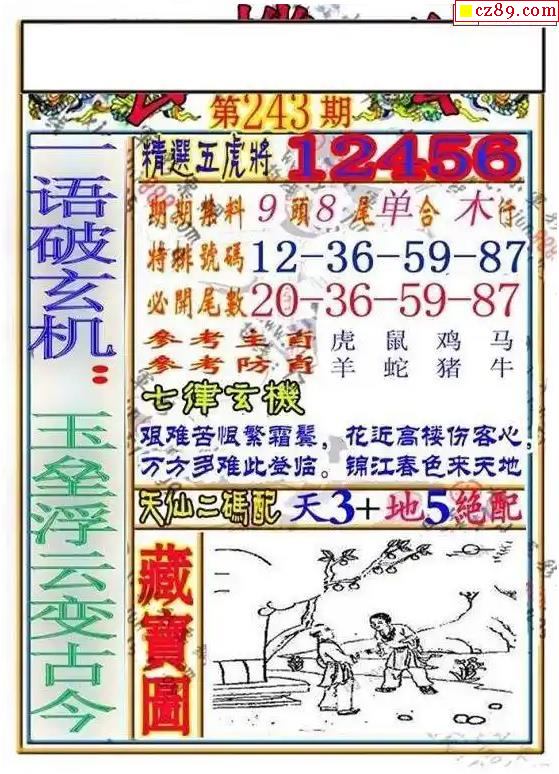 cz89.com
第243期
一语破玄机：玉垒浮云变古今
精選五虎將 12456
期期禁料 9 頭 8 尾 单 合 木 行
特排號碼 12-36-59-87
必開尾數 20-36-59-87
参考主肖 虎 鼠 鸡 马
参考防肖 羊 蛇 猪 牛
七律玄機
艰难苦恨繁霜鬓，花近高楼伤客心，
万方多难此登临。锦江春色来天地
天仙二碼配 天3+地5絕配
藏寶圖